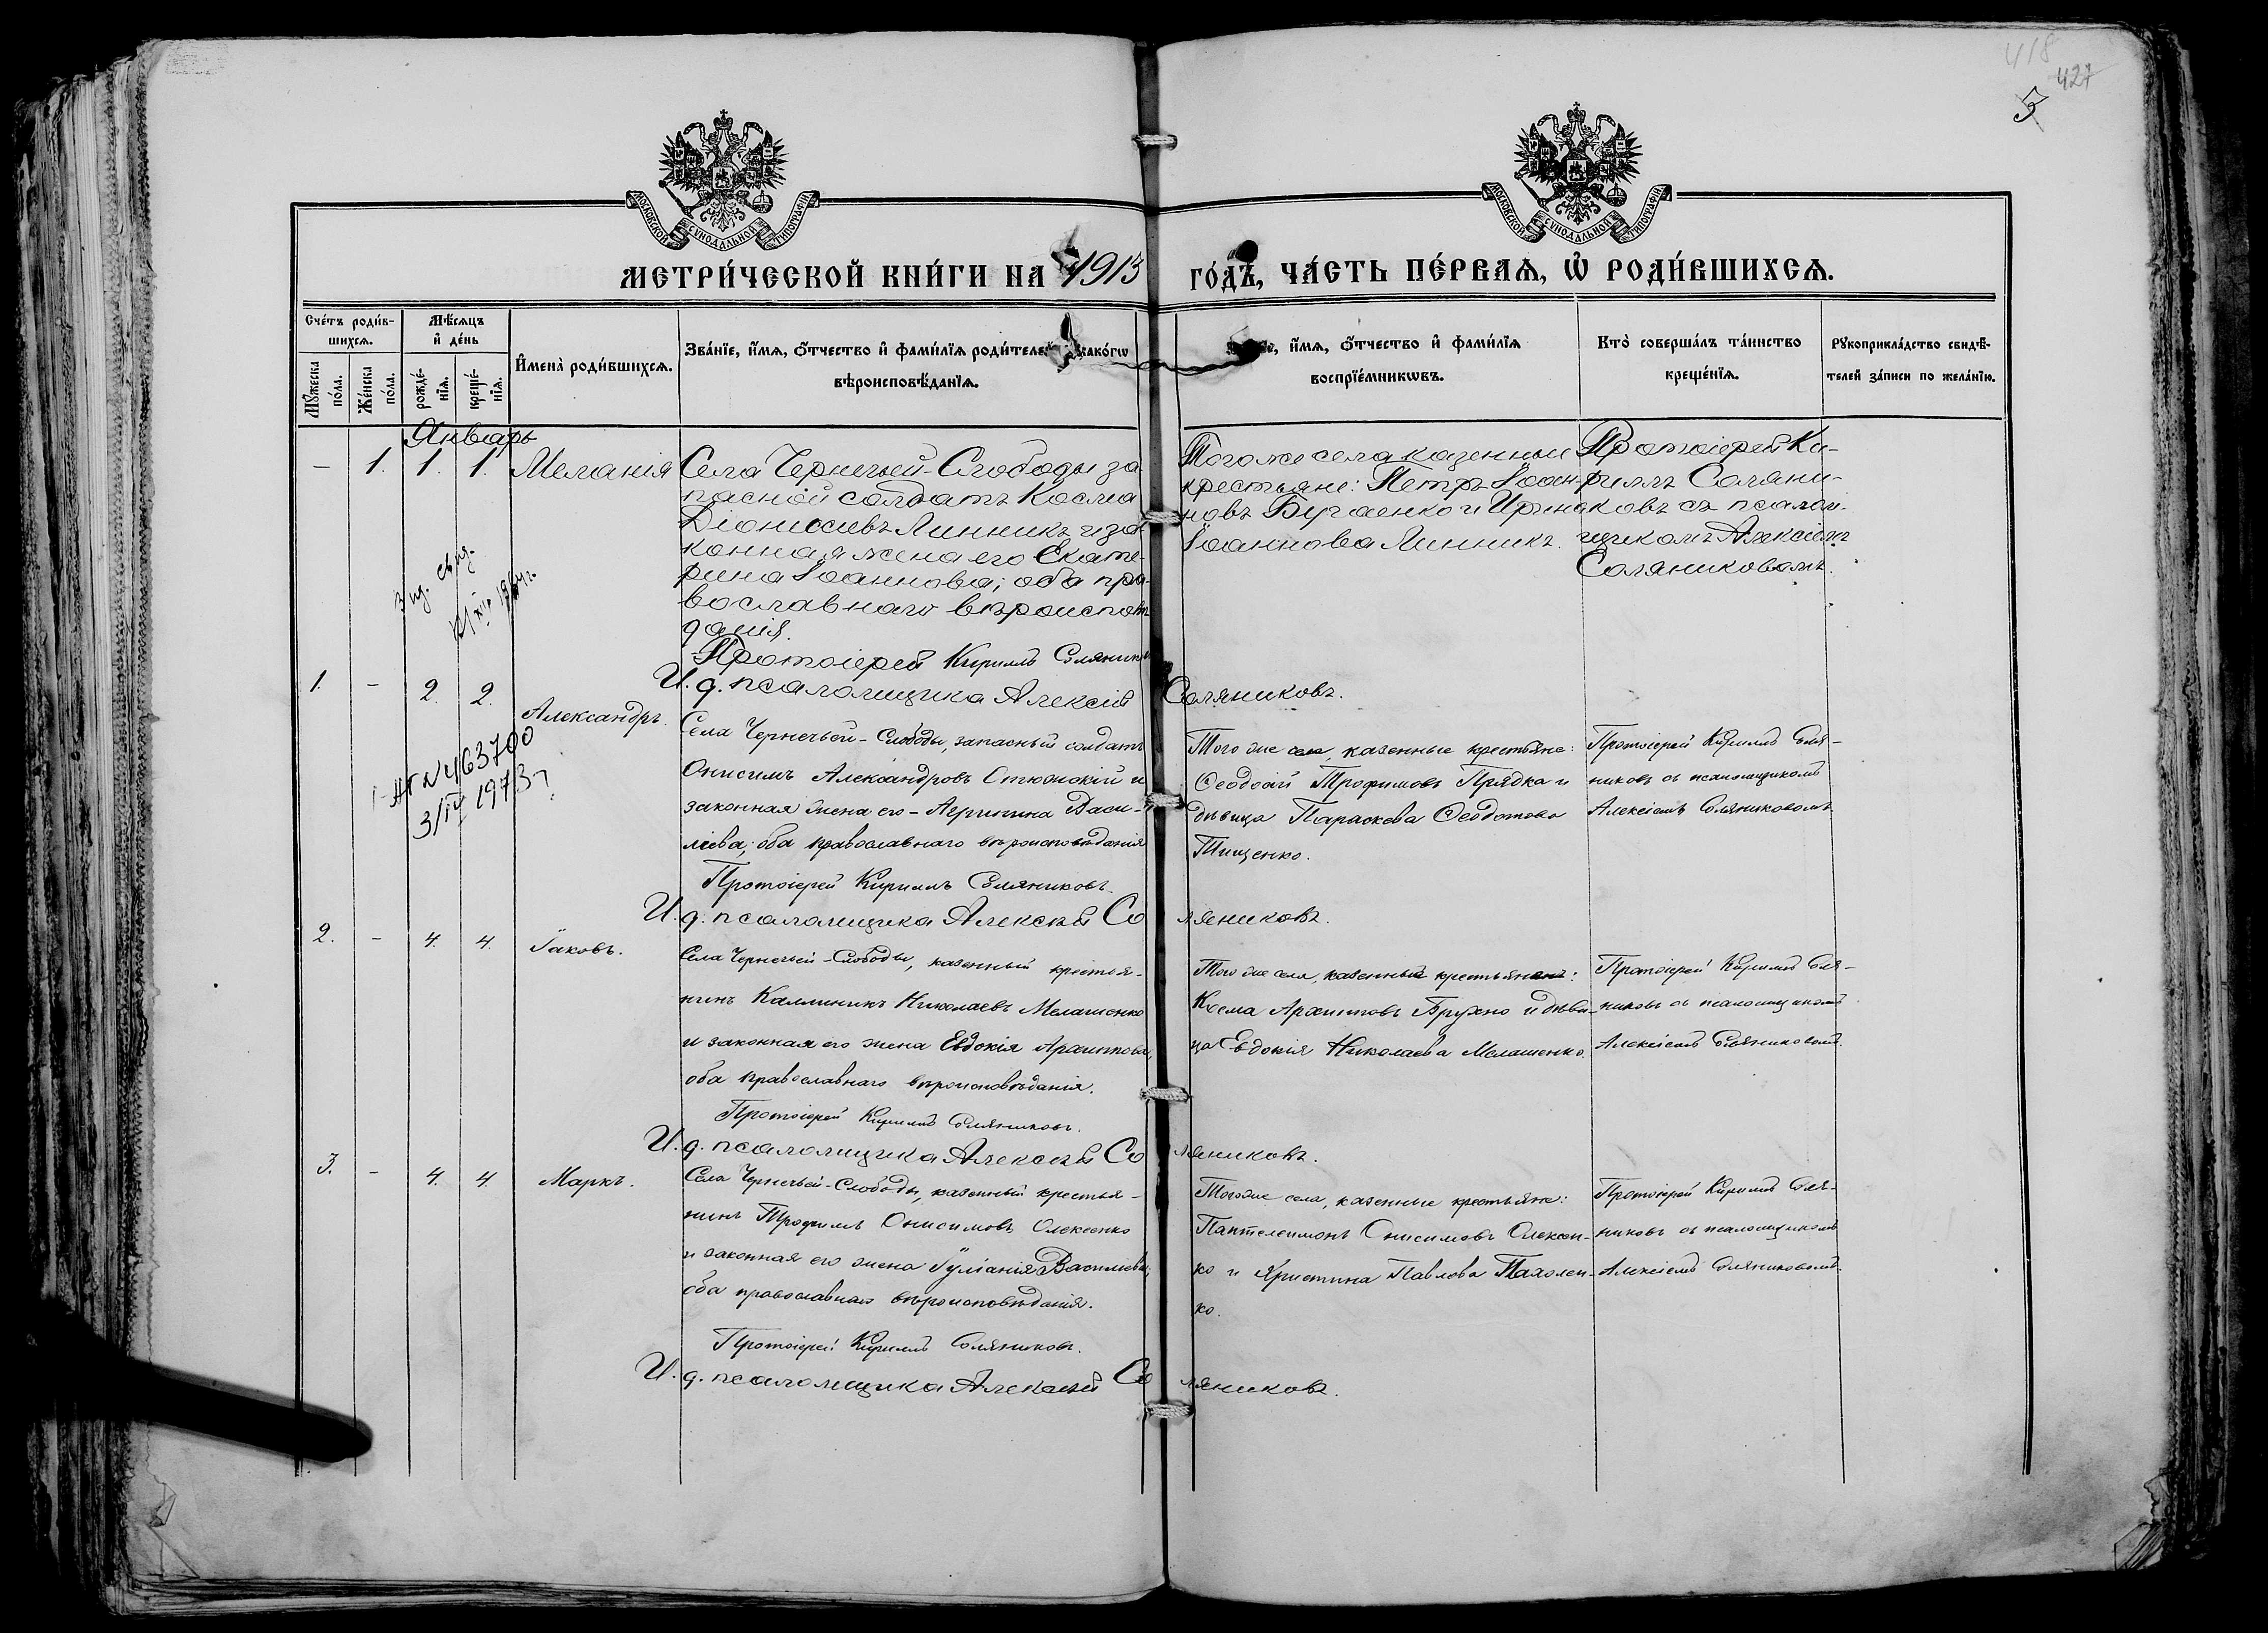 418
427
3
МОСКОВСКОЙ СѴНОДАЛЬНОЙ ТИПОГРАФІИ
МОСКОВСКОЙ СѴНОДАЛЬНОЙ ТИПОГРАФІИ
МЕТРИ́ЧЕСКОЙ КНИ́ГИ НА 1913 ГО́ДЪ, ЧА́СТЬ ПЕ́РВАѦ, Ѡ҆ РОДИ́ВШИХСѦ.
Сче́тъ роди́в-
шихсѧ.
Мꙋ́жеска по́ла.
Же́нска по́ла.
Мѣ́сѧцъ
и҆ де́нь
рожде́-
нїѧ.
креще́-
нїѧ.
И҆мена̀ роди́вшихсѧ.
Зва́нїе, и҆́мѧ, ѻ҆́тчество и҆ фами́лїѧ роди́телей како́гѡ
вѣроисповѣ́данїѧ.
и҆́мѧ, ѻ҆́тчество и҆ фами́лїѧ
воспрїе́мникѡвъ.
Кто̀ соверша́лъ та́инство
креще́нїѧ.
Рꙋкоприкла́дство свидѣ́-
телей за́писи по жела́нїю.
Январь
– 1. 1. 1. Меланія
Села Чернечьей-Слободы за
пасной солдатъ Косма
Діонисіевъ Линникъ и за
конная жена его Екате-
рина Іоаннова; оба пра-
вославнаго вѣроисповѣ
данія.
Того же села казенные
крестьяне: Петръ Іоан-
новъ Бугаенко и Ирина
Іоаннова Линникъ.
Протоіерей Ки-
риллъ Соляни-
ковъ съ псалом-
щикомъ Алексіемъ
Соляниковомъ.
Протоіерей Кириллъ Соляниковъ
И. д. псаломщика Алексій Соляниковъ.
1. – 2. 2. Александръ.
АГ N 463700
3/IV 1973
Села Чернечьей-Слободы, запасный солдатъ
Онисимъ Александровъ Отюжскій и
законная жена его – Агрипина Васи-
ліева; оба православнаго вѣроисповѣданія
Того же села, казенные крестьяне:
Ѳеодосій Трофимовъ Прядка и
дѣвица Параскева Ѳеодотова
Тищенко.
Протоіерей Кириллъ Соля-
никовъ съ псаломщикомъ
Алексіемъ Соляниковомъ
Протоіерей Кириллъ Соляниковъ.
И. д. псаломщика Алексѣй Соляниковъ.
2. – 4. 4. Іаковъ.
Села Чернечьей-Слободы, казенный крестья-
нинъ Каллиникъ Николаевъ Мелашенко
и законная его жена Евдокія Архиппова,
оба православнаго вѣроисповѣданія.
Того же села, казенный крестьянинъ:
Косма Архипповъ Брухно и дѣви-
ца Евдокія Николаева Мелашенко.
Протоіерей Кириллъ Соля-
никовъ съ псаломщикомъ
Алексіемъ Соляниковомъ.
Протоіерей Кириллъ Соляниковъ.
И. д. псаломщика Алексѣй Соляниковъ.
3. – 4. 4. Маркъ.
Села Чернечьей-Слободы, казенный крестья-
нинъ Трофимъ Онисимовъ Олексенко
и законная его жена Іуліанія Василіева;
оба православнаго вѣроисповѣданія.
Того же села, казенные крестьяне:
Пантелеимонъ Онисимовъ Олексен-
ко и Христина Павлова Пахолен-
ко.
Протоіерей Кириллъ Соля-
никовъ съ псаломщикомъ
Алексіемъ Соляниковомъ.
Протоіерей Кириллъ Соляниковъ.
И. д. псаломщика Алексѣй Соляниковъ.